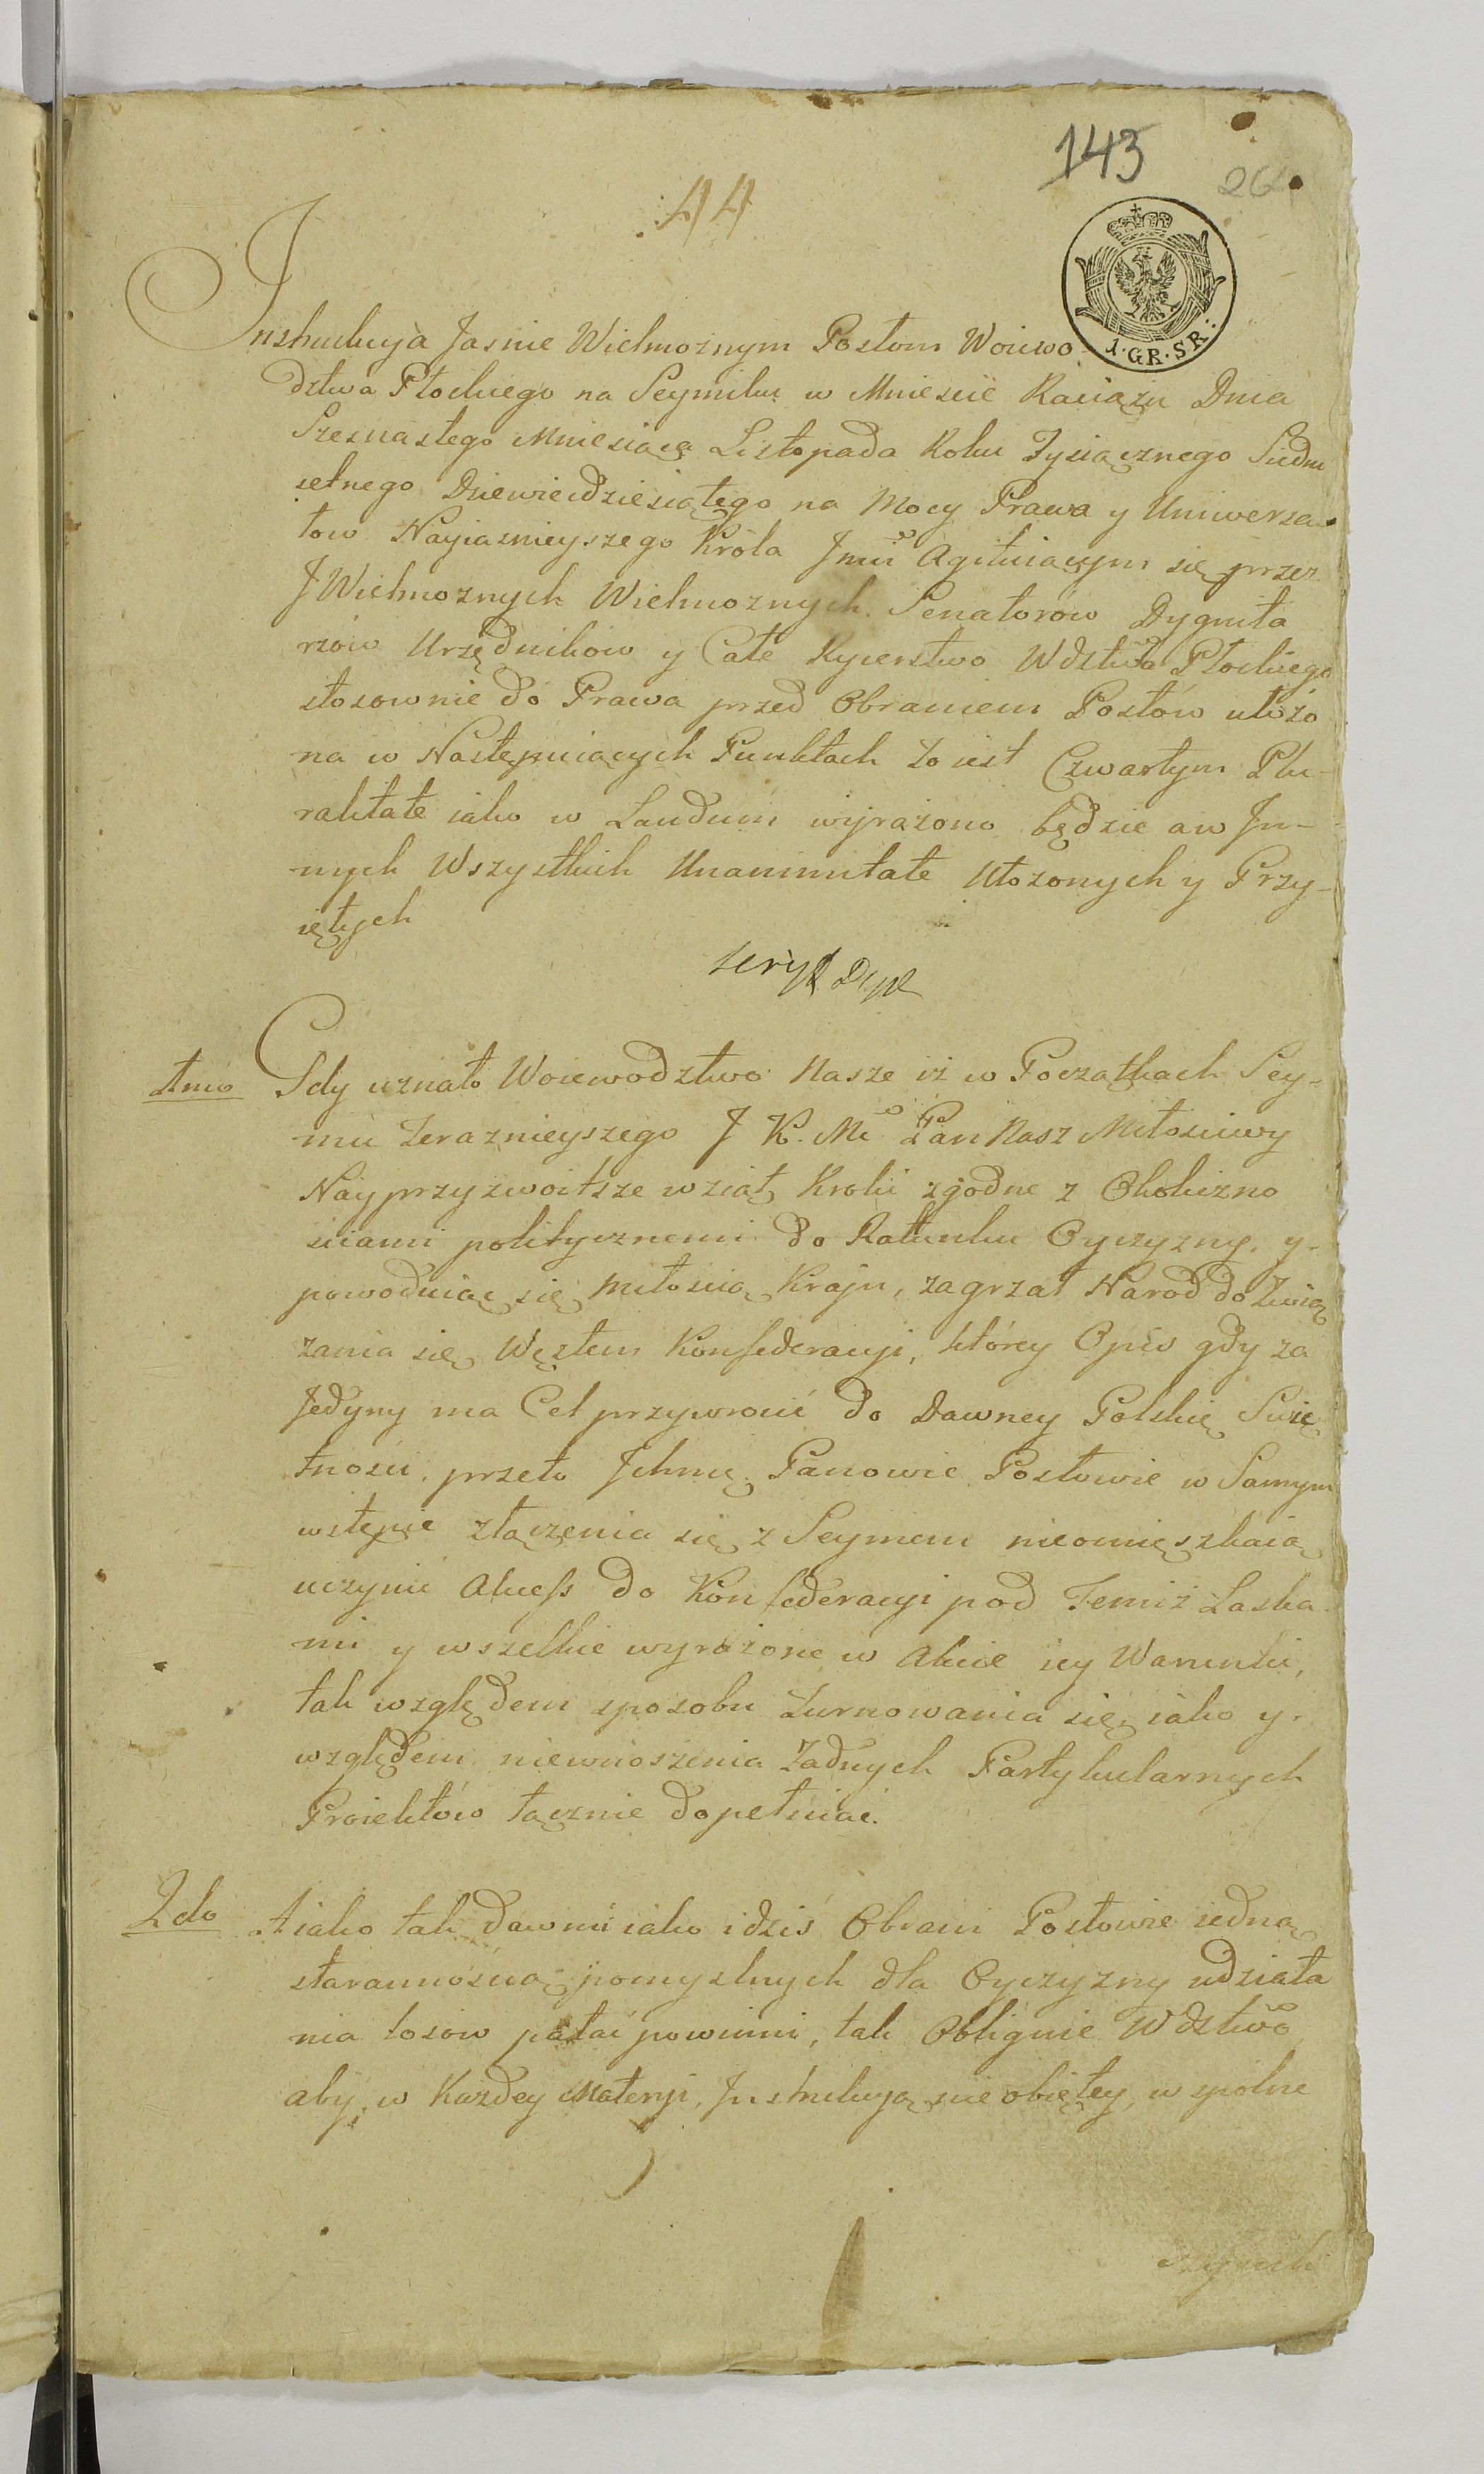 143
26
44
1·GR·SR:
Instrukcya Jasnie Wielmoznym Posłom Woiewo
dztwa Płockiego na Seymiku w Mniescie Raciązu Dnia
Szesnastego Mniesiąca Listopada Roku Tysiącznego Siedm
setnego Dziewiędziesiątego na Mocy Prawa y Uniwersa
łow Nayiasnieyszego Króla Jmci Agituiącym się przez
J Wielmoznych Wielmoznych Senatorow Dygnita
rzów Urzędnikow y Całe Rycerstwo Wdztwa Płockiego
stosownie do Prawa przed Obraniem Posłów ułożo
na w Następuiących Punktach to iest Czwartym Plu-
ralitate iako w Laudum wyrażono będzie a w In-
nych Wszystkich Unanimitate Ułozonych y Przy-
iętych
1mo Gdy uznało Woiewodztwo Nasze iż w Początkach Sey-
mu Teraznieyszego J K. Mć Pan Nasz Miłosciwy
Nayprzyzwoitsze wziął Kroki zgodne z Okolicznо
sciami politycznemi do Ratunku Oyczyzny, y
powoduiąc się miłoscią Kraju, zagrzał Narod do Zwią
zania się Węzłem Konfederacyi, którey Opis gdy za
Jedyny ma Cel przywrocić do Dawney Polskię Swie
tności, przeto Ichmć Panowie Posłowie w Samym
wstępie złączenia się z Seymem nieomięszkaią
uczynić Akcess do Konfederacyi pod Temiż Laska
mi y wszelkie wyrażone w Akcie iey Warunki,
tak względem sposobu Turnowania się, iako y
względem niewnoszenia Żadnych Partykularnych
Proiektów łącznie dopełniać.
2do A iako tak dawni iako i dziś Obrani Posłowie iedną
starannością pomyslnych dla Oyczyzny udziała
nia losow pałać powinni, tak Obliguie Wdztwo
aby w Kazdey Materyi, Instrukcyą nie obiętey, wspolne